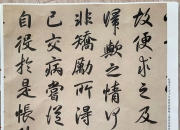 故便求之及
歸歟之情何
非矯勵所得
己交病嘗從
自役於是悵